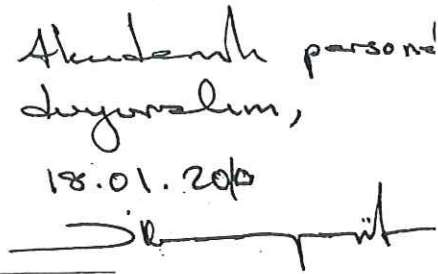 Akademik persone
duyuralım,
18.01.2010